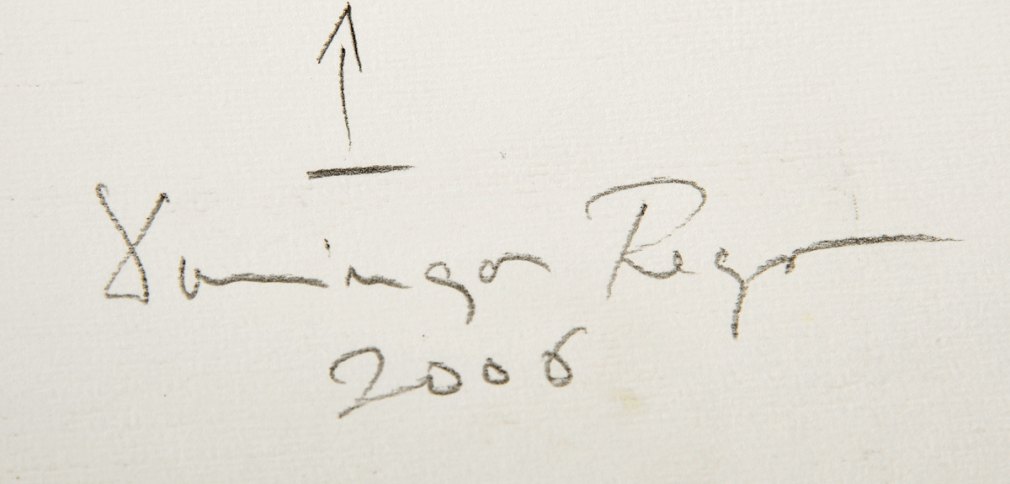 Domingo Rego
2006